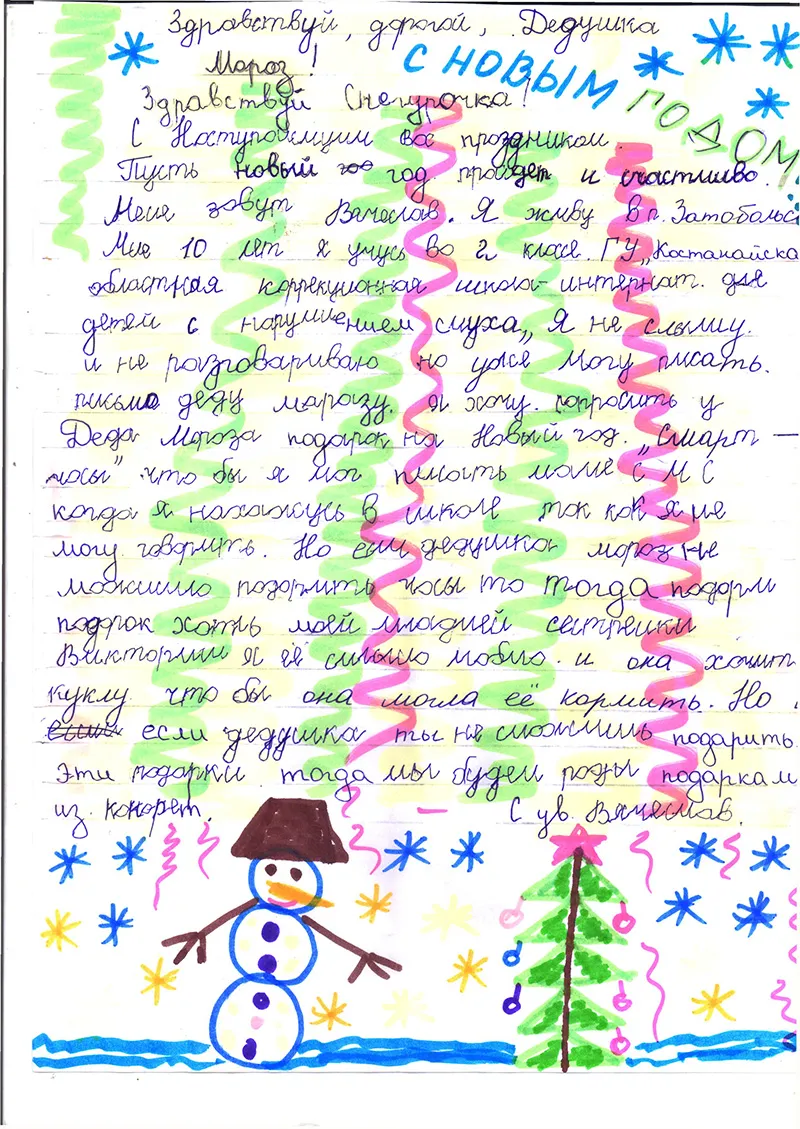 Здравствуй, дорогой, Дедушка
Мороз!
С НОВЫМ ГОДОМ
Здравствуй Снегурочка!
С Наступающим вас праздником.
Пусть новый год пройдет и счастливо.
Меня зовут Вячеслав. Я живу в п. Затобольс
Мне 10 лет я учусь во 2 класе. ГУ „Костанайска
областная коррекционная школа-интернат. для
детей с нарушением слуха„ Я не слышу.
и не разговариваю но уже могу писать.
письмо деду марозу. я хочу. попросить у
Деда Мороза подарок на Новый год. „Смарт –
часы" что бы я мог писать маме СМС
когда я нахожусь в школе так как я не
могу. говорить. Но если дедушка мороз не
можишь подарить часы то тогда подари
подарок хотя моей младшей сестрёнки
Виктории я её сильно люблю. и она хочит
куклу что бы она могла её кормить. Но
если дедушка ты не сможишь подарить
эти подарки тогда мы будем рады подаркам
из конфет. С ув. Вячеслав.